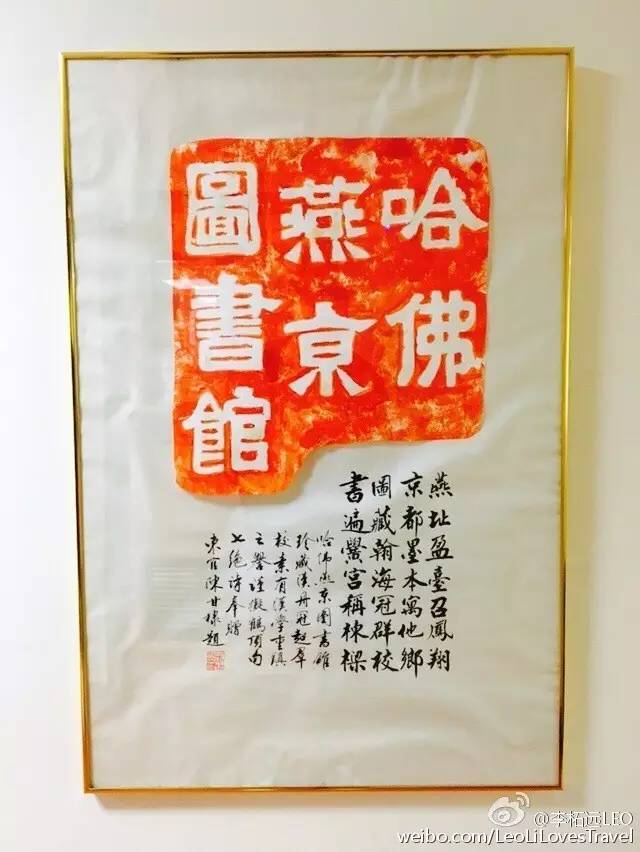 哈佛
燕京
圖書館
燕址盈臺召鳳翔
京都墨本寓他鄉
圖藏翰海冠群校
書遍黌宮稱棟樑
哈佛燕京圖書館
珍藏漢冊冠超羣
校素有漢學重鎮
之譽謹擬鶴頂句
七絕詩奉贈
東官陳甘棣題
@李柘远LEO
weibo.com/LeoLiLovesTravel